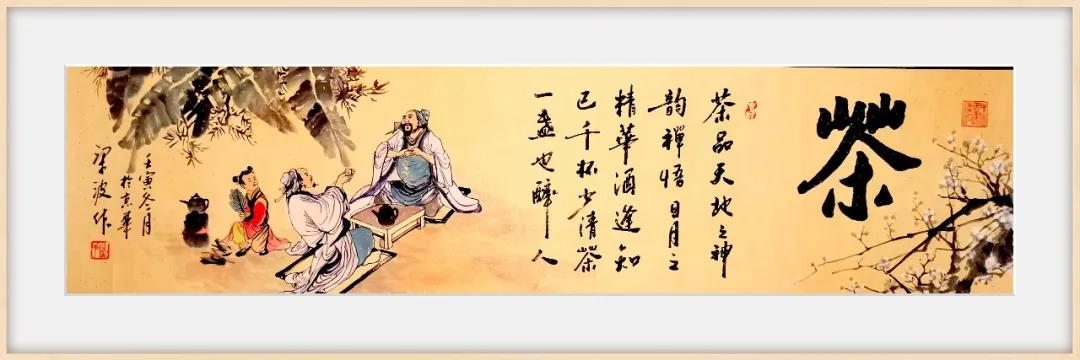 茶
茶品天地之神
韵禪悟日月之
精華酒逢知
己千杯少清茶
一盏也醉人
壬寅冬月
於京華
梁波作